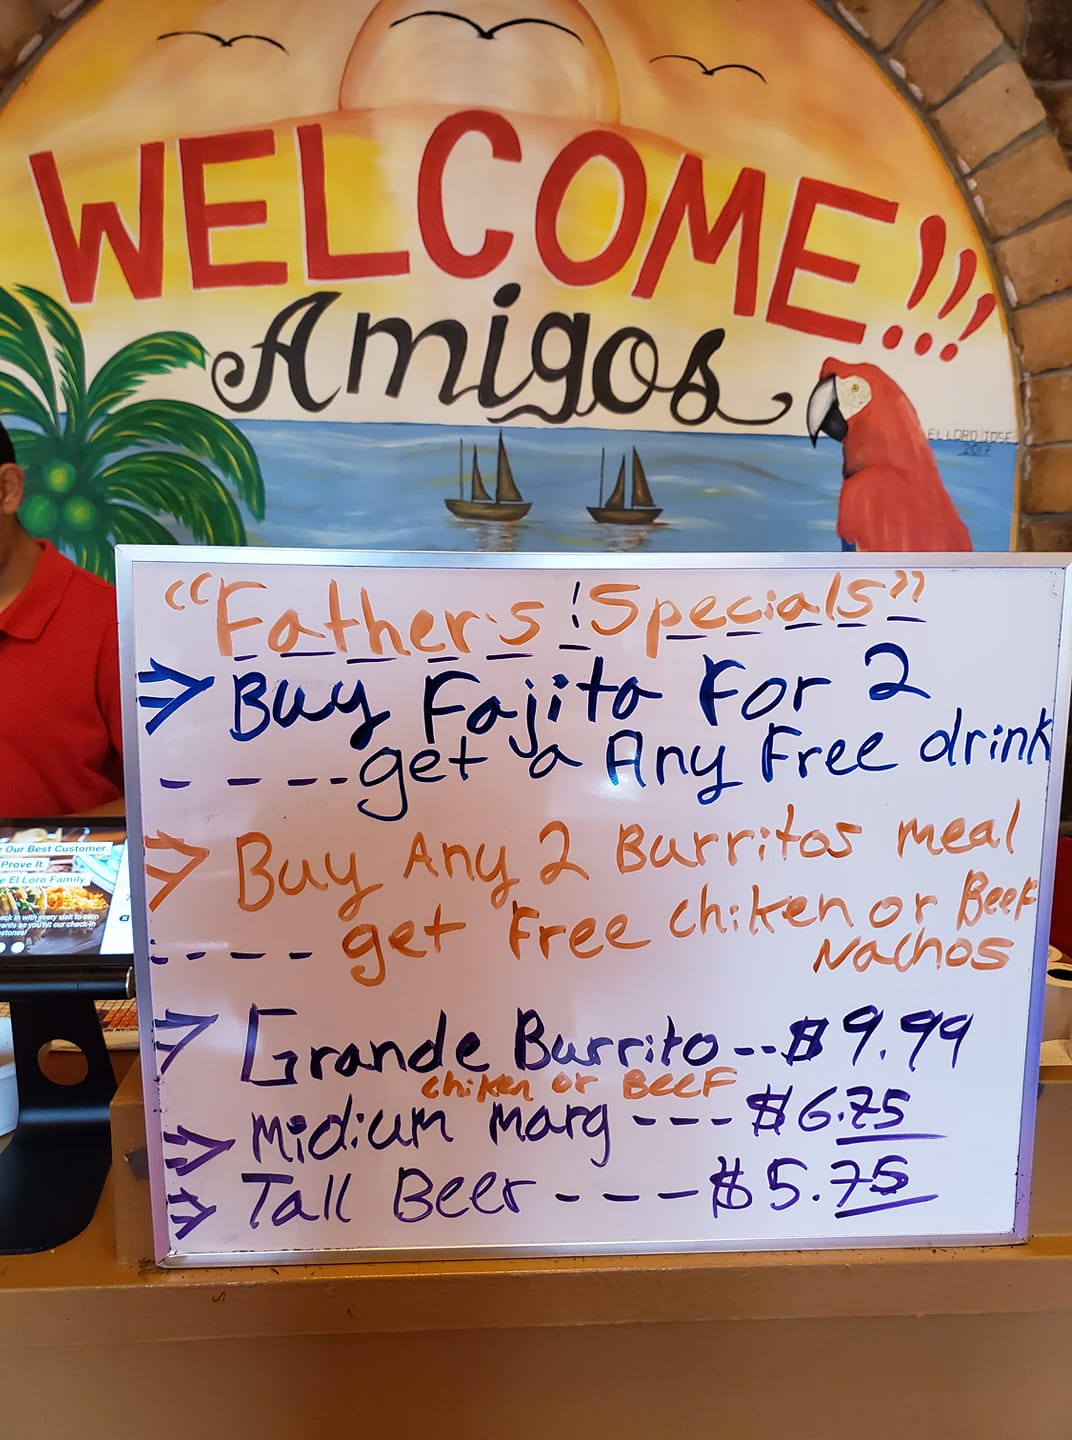 WELCOME!!!
Amigos
EL LORO JOSE
2017
"Father's Specials"
Buy Fajita For 2
get a Any Free drink
Buy Any 2 Burritos meal
get Free chiken or Beef
Nachos
Grande Burrito --$9.99
chiken or BEEF
Midium marg ---$6.75
Tall Beer ----$5.75
Our Best Customer.
Prove It.
El Loro Family